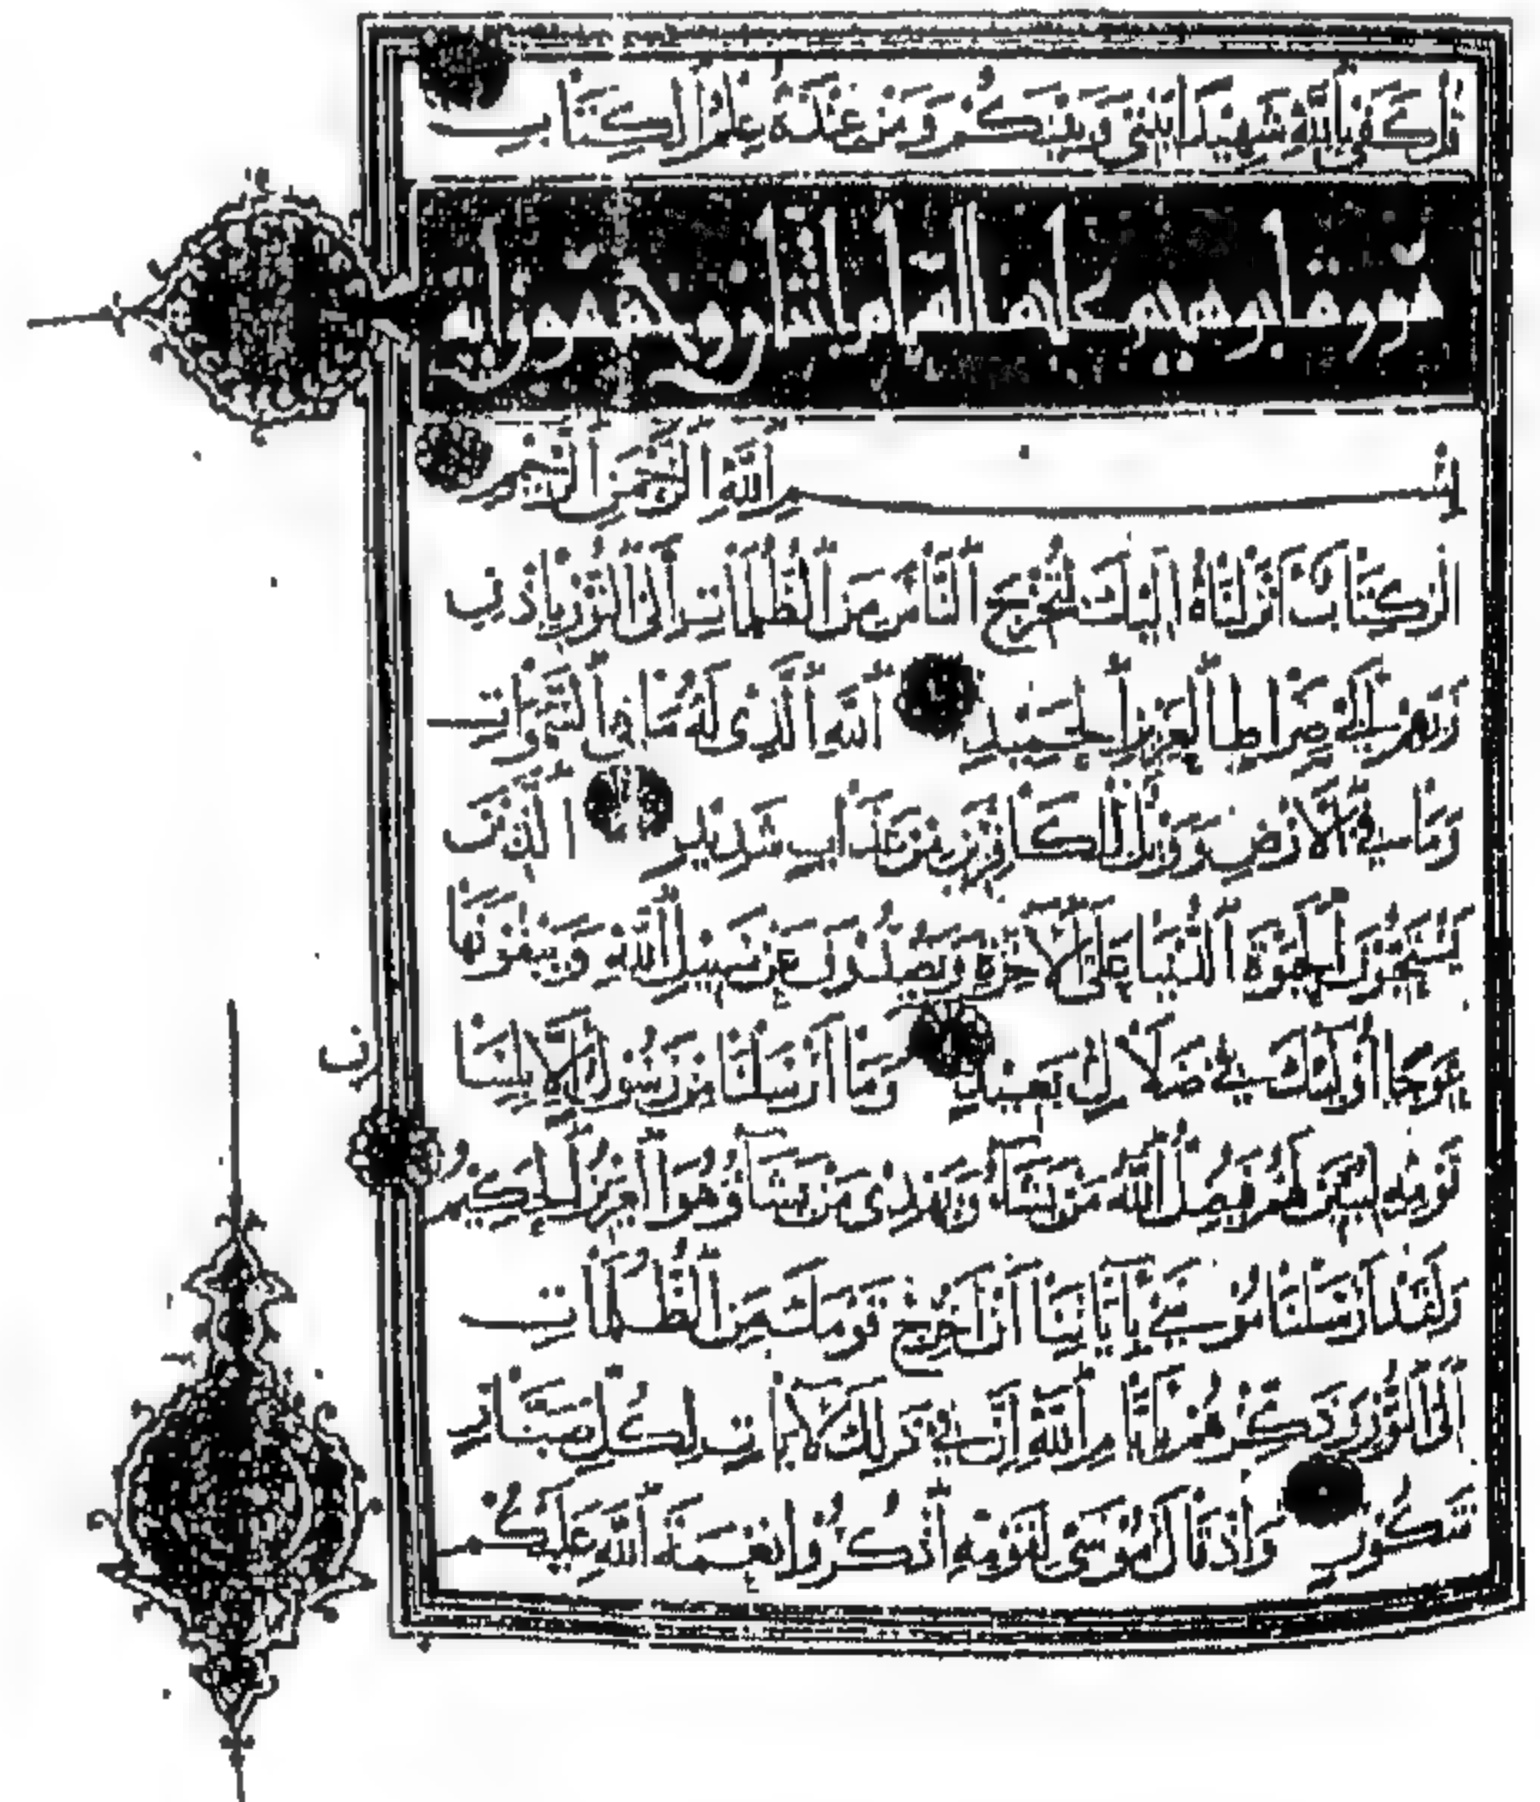 قُلْ كَفَىٰ بِاللَّهِ شَهِيدًا بَيْنِي وَبَيْنَكُمْ وَمَنْ عِنْدَهُ عِلْمُ الْكِتَابِ
سورة ابرهيم عليه السلام اثنان وخمسون اية
بِسْمِ اللَّهِ الرَّحْمَٰنِ الرَّحِيمِ
الر كِتَابٌ أَنْزَلْنَاهُ إِلَيْكَ لِتُخْرِجَ النَّاسَ مِنَ الظُّلُمَاتِ إِلَى النُّورِ بِإِذْنِ
رَبِّهِمْ إِلَىٰ صِرَاطِ الْعَزِيزِ الْحَمِيدِ اللَّهِ الَّذِي لَهُ مَا فِي السَّمَٰوَاتِ
وَمَا فِي الْأَرْضِ وَوَيْلٌ لِلْكَافِرِينَ مِنْ عَذَابٍ شَدِيدٍ الَّذِينَ
يَسْتَحِبُّونَ الْحَيَوٰةَ الدُّنْيَا عَلَى الْآخِرَةِ وَيَصُدُّونَ عَنْ سَبِيلِ اللَّهِ وَيَبْغُونَهَا
عِوَجًا أُولَٰئِكَ فِي ضَلَالٍ بَعِيدٍ وَمَا أَرْسَلْنَا مِنْ رَسُولٍ إِلَّا بِلِسَانِ
قَوْمِهِ لِيُبَيِّنَ لَهُمْ فَيُضِلُّ اللَّهُ مَنْ يَشَاءُ وَيَهْدِي مَنْ يَشَاءُ وَهُوَ الْعَزِيزُ الْحَكِيمُ
وَلَقَدْ أَرْسَلْنَا مُوسَىٰ بِآيَاتِنَا أَنْ أَخْرِجْ قَوْمَكَ مِنَ الظُّلُمَاتِ
إِلَى النُّورِ وَذَكِّرْهُمْ بِأَيَّامِ اللَّهِ إِنَّ فِي ذَٰلِكَ لَآيَاتٍ لِكُلِّ صَبَّارٍ
شَكُورٍ وَإِذْ قَالَ مُوسَىٰ لِقَوْمِهِ اذْكُرُوا نِعْمَةَ اللَّهِ عَلَيْكُمْ